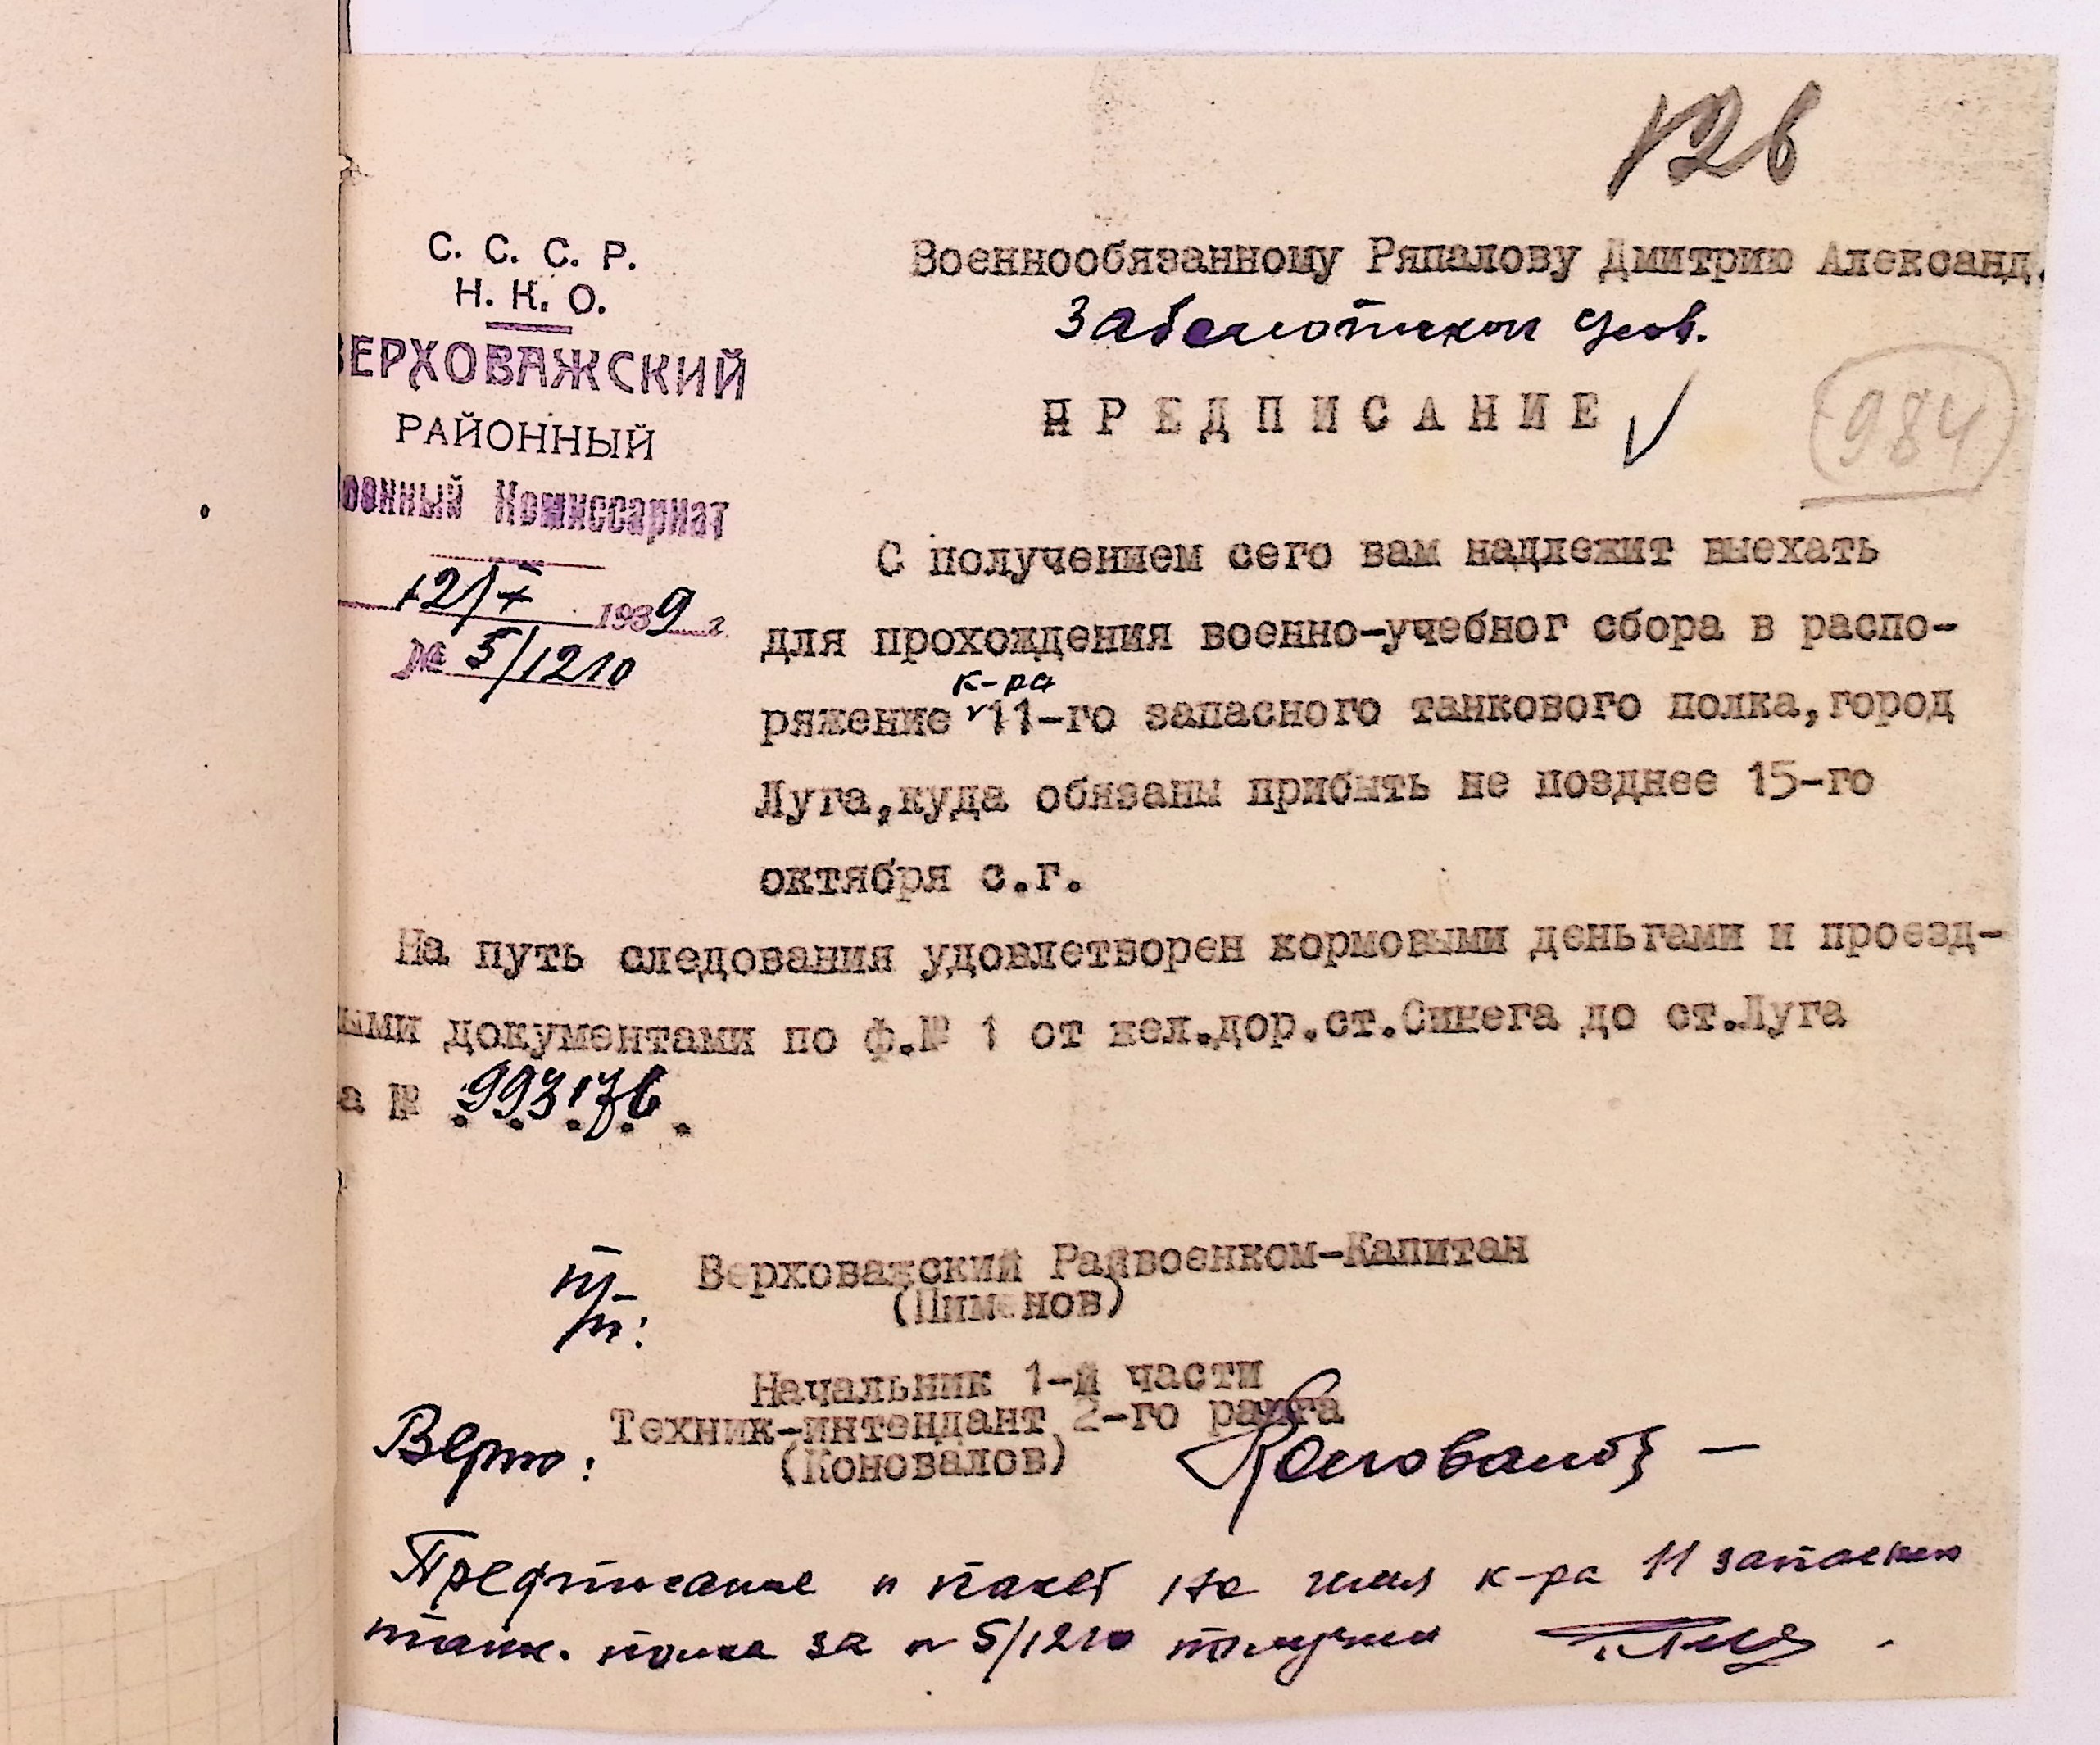 126
С. С. С. Р.
Н. К. О.
ВЕРХОВАЖСКИЙ
РАЙОННЫЙ
военный Комиссариат
12/X 1939 г.
№ 5/1210
Военнообязанному Ряпалову Дмитрию Александ.
984
ПРЕДПИСАНИЕ
С получением сего вам надлежит выехать
для прохождения военно-учебног сбора в распо-
к-ра
ряжение 11-го запасного танкового полка, город
Луга, куда обязаны прибыть не позднее 15-го
октября с.г.
На путь следования удовлетворен кормовыми деньгами и проезд-
ыми документами по ф.№ 1 от жел.дор.ст.Синега до ст.Луга
а № 993176
п/п: Верховажский Райвоенком-Капитан
(Пименов)
Начальник 1-й части
Техник-интендант 2-го ранга
Верно: (Коновалов) Коновалов
Предписание и пакет на имя к-ра 11 запасного
танк. полка за № 5/1210 получил